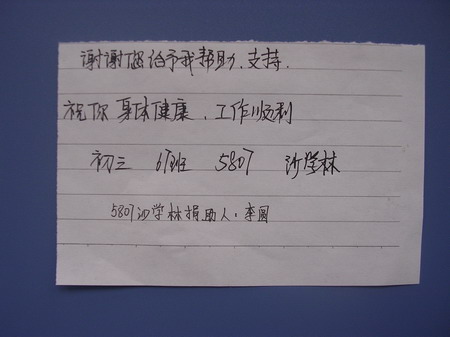 谢谢您给予我帮助、支持.
祝你身体健康、工作顺利
初三 6班 5807 沙学林
5807沙学林捐助人:李圆